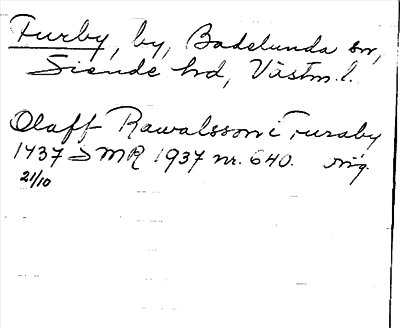 Furby, by, Badelunda sn,
Siende hd, Västm. l.
Olaff Rawalsson i Furaby
1437 SMR 1937 nr. 640. orig.
21/10